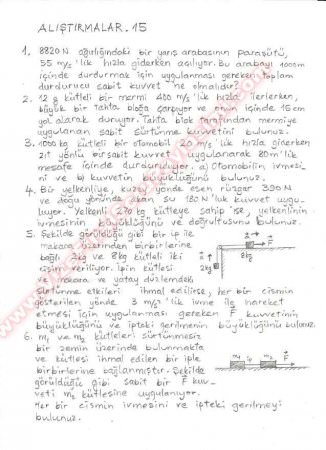 ALIŞTIRMALAR. 15
1. 8820 N ağırlığındaki bir yarış arabasının paraşütü,
55 m/s'lik hızla giderken açılıyor. Bu arabayı 1000m
içinde durdurmak için uygulanması gereken toplam
durdurucu sabit kuvvet ne olmalıdır?
2. 12 g kütleli bir mermi 400 m/s'lik hızla ilerlerken,
büyük bir tahta bloğa çarpıyor ve onun içinde 15 cm
yol alarak duruyor. Tahta blok tarafından mermiye
uygulanan sabit sürtünme kuvvetini bulunuz.
3. 1000 kg kütleli bir otomobil 20 m/s'lik hızla giderken
zıt yönlü bir sabit kuvvet uygulanarak 80m'lik
mesafe içinde durduruluyor. a) Otomobilin ivmesi-
ni ve b) kuvvetin büyüklüğünü bulunuz.
4. Bir yelkenliye, kuzey yönde esen rüzgar 390 N
ve doğu yönünde akan su 180 N'luk kuvvet uygu-
luyor. Yelkenli 270 kg kütleye sahip ise, yelkenlinin
ivmesinin büyüklüğünü ve doğrultusunu bulunuz.
5. Şekilde görüldüğü gibi bir ip ile
makara üzerinden birbirlerine
bağlı 2kg ve 8kg kütleli iki
cisim veriliyor. İpin kütlesi
makara ve yatay düzlemdeki
sürtünme etkileri ihmal edilirse, her bir cismin
gösterilen yönde 3 m/s²'lik ivme ile hareket
etmesi için uygulanması gereken F kuvvetinin
büyüklüğünü ve ipteki gerilmenin büyüklüğünü bulunuz.
a
F
8kg
a
2kg
6. m₁ ve m₂ kütleleri sürtünmesiz
bir zemin üzerinde bulunmakta
ve kütlesi ihmal edilen bir iple
birbirlerine bağlanmıştır. Şekilde
görüldüğü gibi sabit bir F kuv-
veti m₂ kütlesine uygulanıyor.
Her bir cismin ivmesini ve ipteki gerilmeyi
bulunuz.
m₁
m₂
F